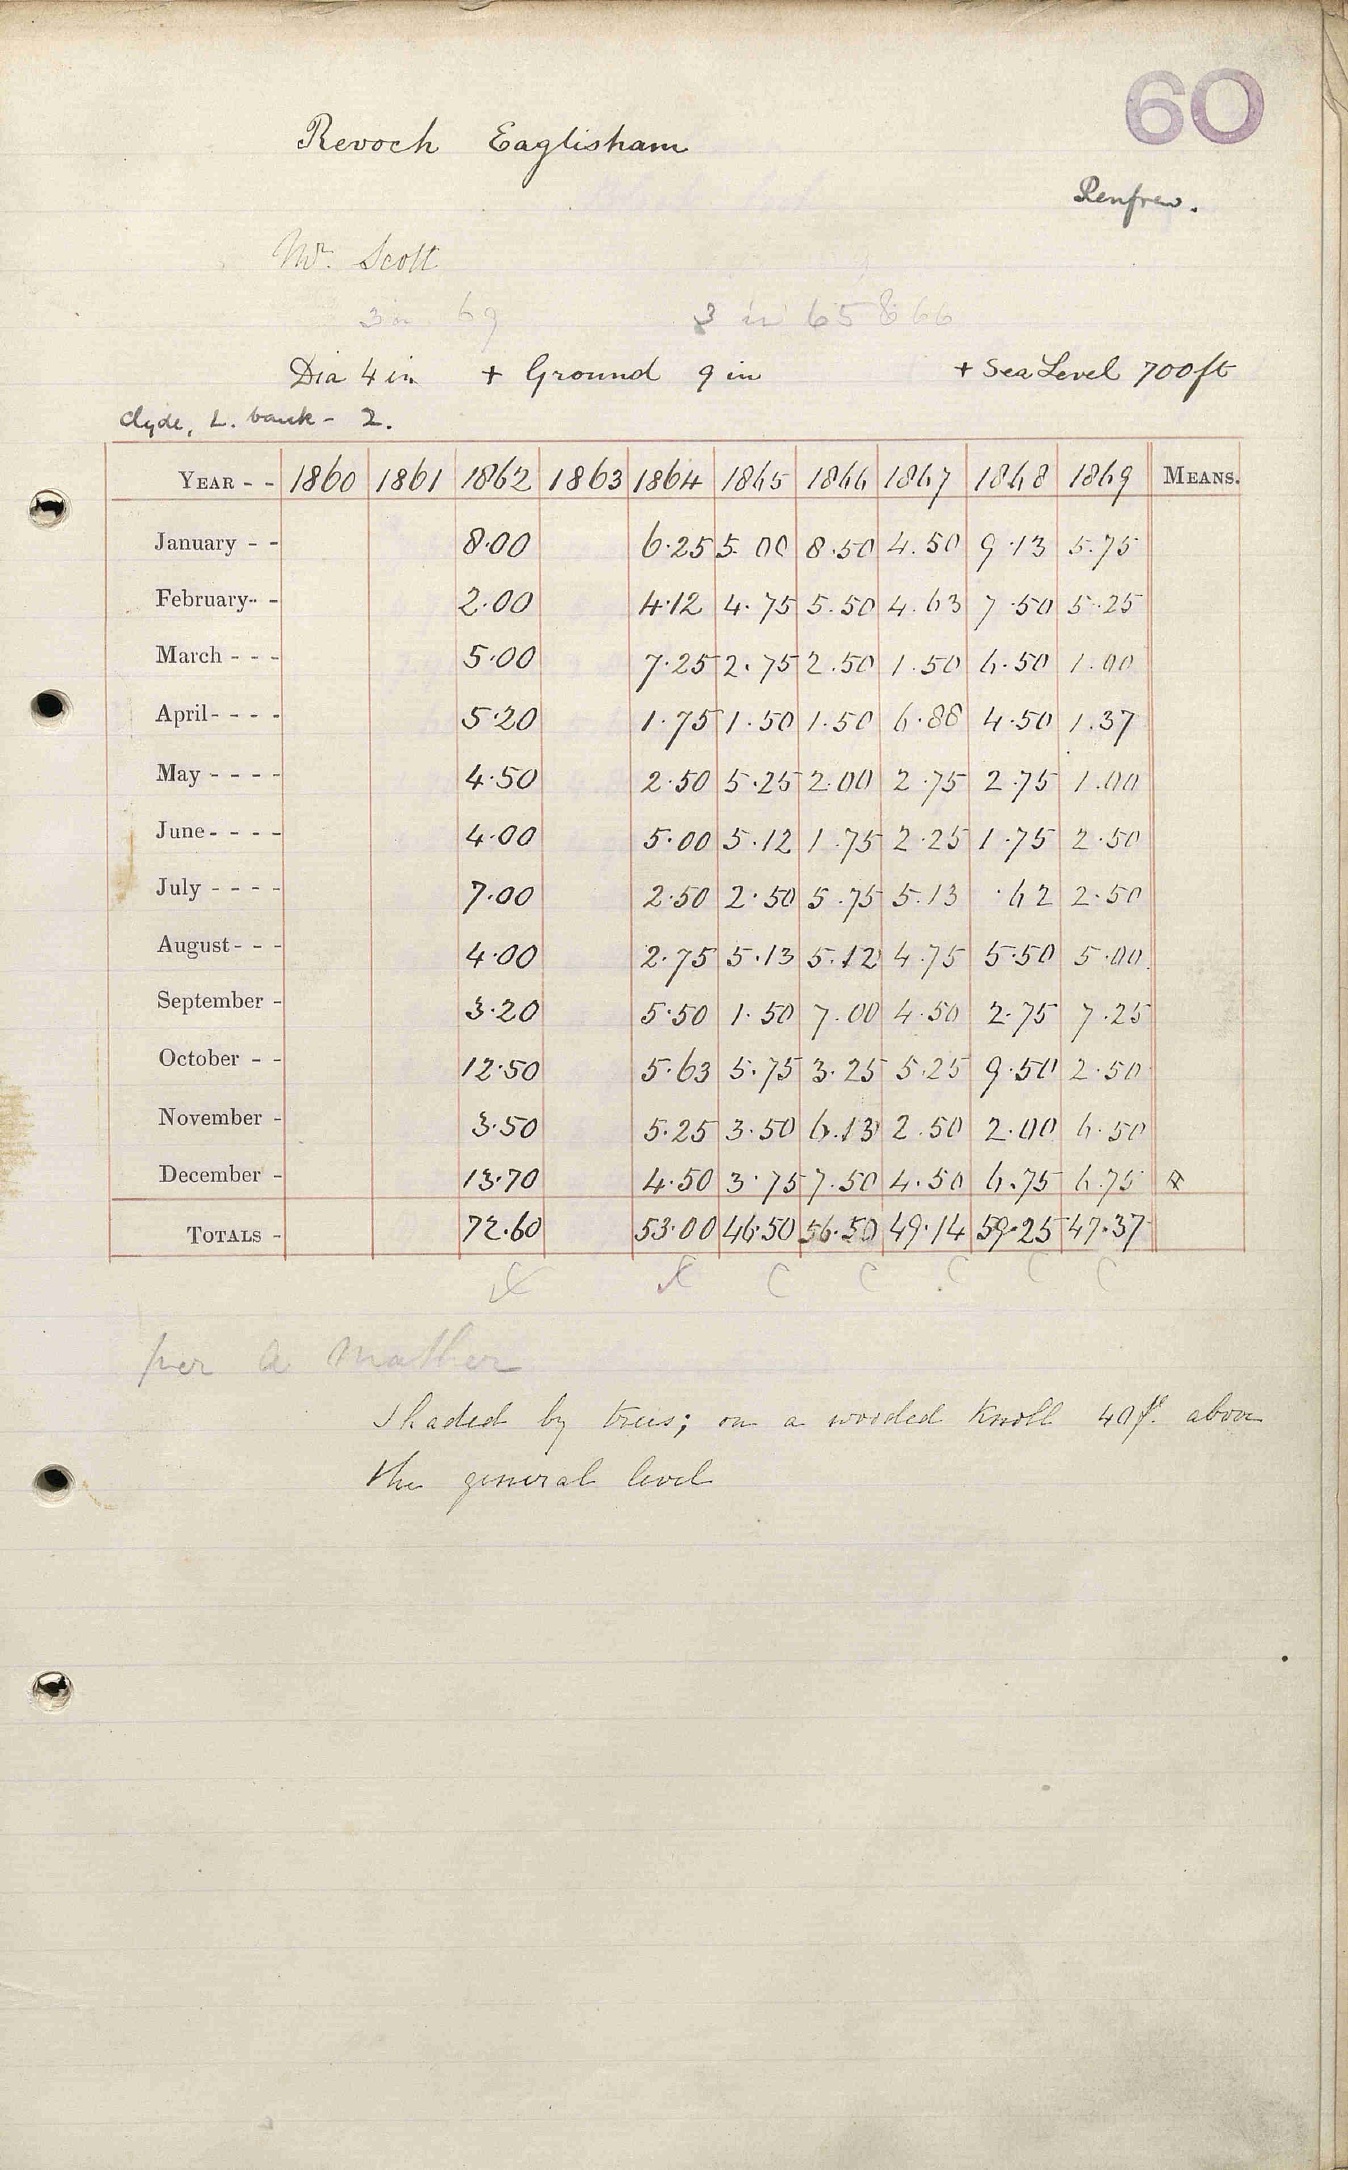 60
Revoch Eaglisham
Renfrew.
Mr. Scott
3 in 69 3 in 65 & 66
Dia 4 in + Ground 9 in + Sea Level 700 ft
Clyde, L. bank - 2.
YEAR - - 1860 1861 1862 1863 1864 1865 1866 1867 1868 1869 MEANS.
January - - 8.00 6.25 5.00 8.50 4.50 9.13 5.75
February - - 2.00 4.12 4.75 5.50 4.63 7.50 5.25
March - - - 5.00 7.25 2.75 2.50 1.50 6.50 1.00
April - - - - 5.20 1.75 1.50 1.50 6.88 4.50 1.37
May - - - - 4.50 2.50 5.25 2.00 2.75 2.75 1.00
June - - - - 4.00 5.00 5.12 1.75 2.25 1.75 2.50
July - - - - 7.00 2.50 2.50 5.75 5.13 .62 2.50
August - - - 4.00 2.75 5.13 5.12 4.75 5.50 5.00
September - 3.20 5.50 1.50 7.00 4.50 2.75 7.25
October - - 12.50 5.63 5.75 3.25 5.25 9.50 2.50
November - 3.50 5.25 3.50 6.13 2.50 2.00 6.50
December - 13.70 4.50 3.75 7.50 4.50 6.75 6.75
TOTALS - 72.60 53.00 46.50 56.50 49.14 59.25 47.37
x x c c c c c
per A Mather
Shaded by trees; on a wooded Knoll 40 ft. above
the general level